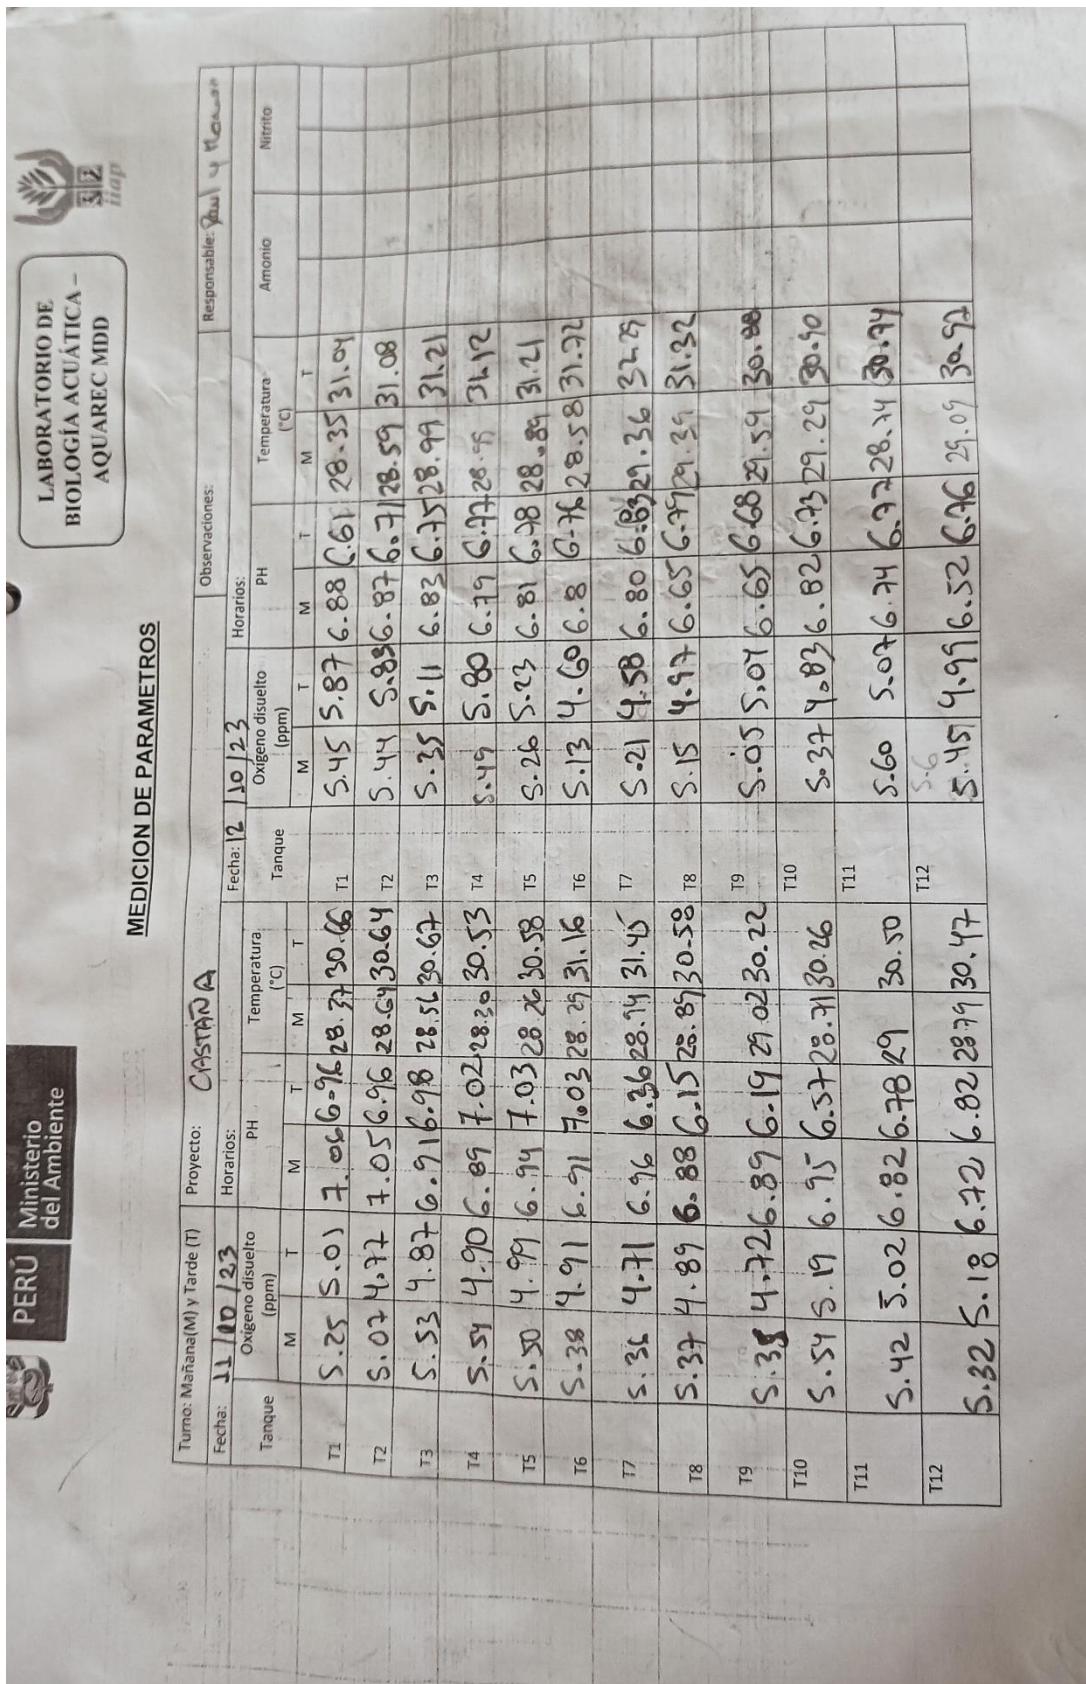 PERÚ Ministerio del Ambiente
LABORATORIO DE
BIOLOGÍA ACUÁTICA –
AQUAREC MDD
iiap
MEDICION DE PARAMETROS
Turno: Mañana(M) y Tarde (T) Proyecto: CASTAÑA Observaciones: Responsable: Paul y
Fecha: 11/10/23 Horarios: Fecha: 12/10/23 Horarios:
Tanque Oxigeno disuelto (ppm) PH Temperatura (°C) Tanque Oxigeno disuelto (ppm) PH Temperatura (°C) Amonio Nitrito
M T M T M T M T M T M T
T1 5.25 5.01 7.06 6.96 28.37 30.66 T1 5.45 5.87 6.88 6.61 28.35 31.04
T2 5.07 4.77 7.05 6.96 28.64 30.64 T2 5.44 5.83 6.87 6.71 28.59 31.08
T3 5.53 4.87 6.91 6.98 28.56 30.67 T3 5.35 5.11 6.83 6.75 28.99 31.21
T4 5.54 4.90 6.89 7.02 28.30 30.53 T4 5.49 5.80 6.79 6.77 28.95 31.12
T5 5.50 4.99 6.94 7.03 28.26 30.58 T5 5.26 5.23 6.81 6.78 28.89 31.21
T6 5.38 4.91 6.91 7.03 28.29 31.16 T6 5.13 4.60 6.8 6.76 28.58 31.72
T7 5.36 4.71 6.96 6.36 28.94 31.45 T7 5.21 4.58 6.80 6.63 29.36 32.29
T8 5.37 4.89 6.88 6.15 28.89 30.58 T8 5.15 4.97 6.65 6.79 29.39 31.32
T9 5.38 4.72 6.89 6.19 29.02 30.22 T9 5.05 5.04 6.65 6.68 29.59
T10 5.54 5.19 6.95 6.57 28.71 30.26 T10 5.37 4.83 6.82 6.73 29.29 30.90
T11 5.42 5.02 6.82 6.78 29 30.50 T11 5.60 5.07 6.74 6.77 28.74 30.74
T12 5.32 5.18 6.72 6.82 28.79 30.47 T12 5.6 5.45 4.99 6.52 6.76 29.09 30.97